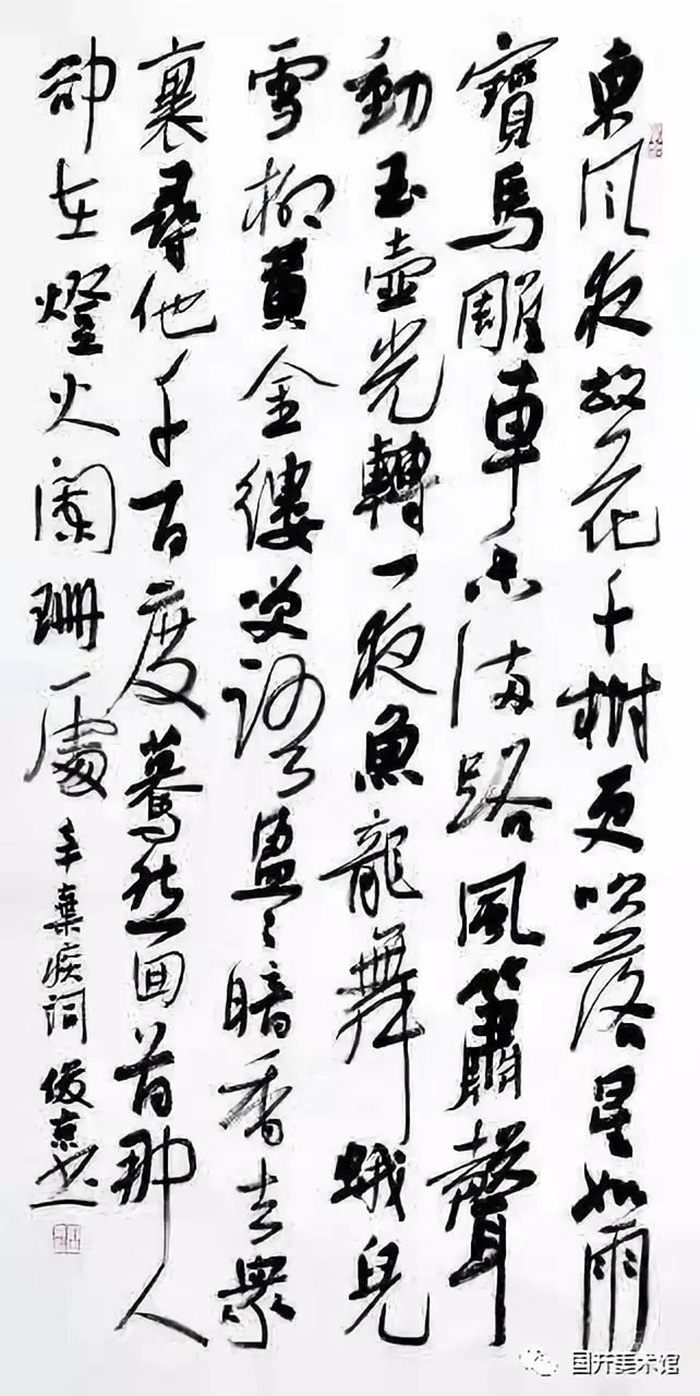 東风夜故花千樹更吹落星如雨
寶馬雕車香滿路風簫聲
動玉壺光轉一夜魚龍舞蛾兒
雪柳黄金縷笑語盈々暗香去眾
裏尋他千百度驀然回首那人
卻在燈火闌珊處 辛棄疾词 俊京书
国开美术馆